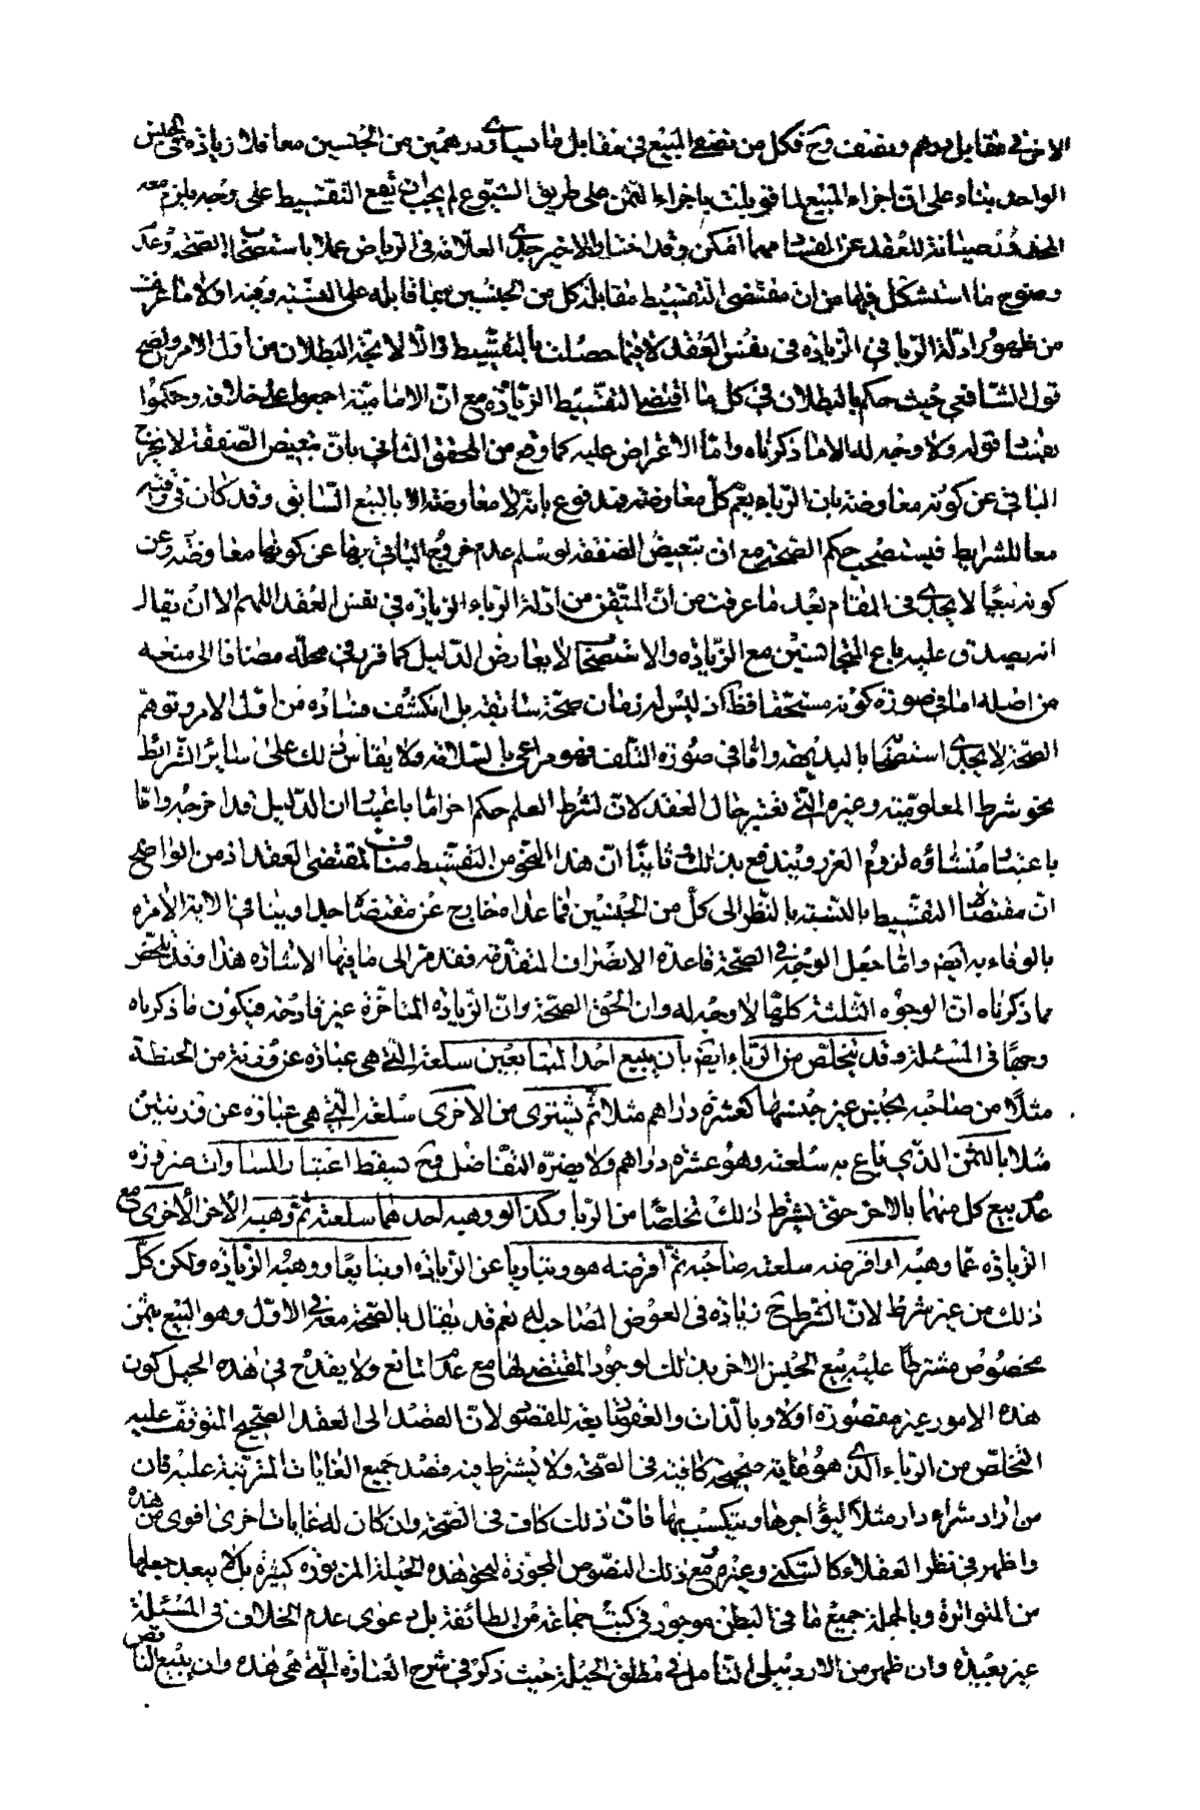 الاخر في مقابل درهم ونصف وح فكل من نصفي المبيع في مقابل ما يساوي درهمين من الجنسين معا فلا زيادة في الجنس
الواحد بناء على ان اجزاء المبيع لما قوبلت باجزاء الثمن على طريق الشيوع لم يجب ان يقع التقسيط على وجه يلزم معه
المحذور صيانة للعقد عن الفساد مهما امكن وقد اختار الاخير جدي العلامة في الرياض عملا باستصحاب الصحة وعدم
وضوح ما استشكل فيها من ان مقتضى التقسيط مقابلة كل من الجنسين بما قابله على النسبة وفيه اولا ما عرفت
من ظهور ادلة الربا في الزيادة في نفس العقد لا فيما حصلت بالتقسيط والا لاتجه البطلان من اول الامر واتضح
قول الشافعي حيث حكم بالبطلان في كل ما اقتضى التقسيط الزيادة مع ان الامامية اجمعوا على خلافه وحكموا
بفساد قوله ولا وجه له الا ما ذكرناه واما الاعتراض عليه كما وقع من المحقق الثاني بان تبعيض الصفقة لا يخرج
الباقي عن كونه معاوضة بان الرباء يعم كل معاوضة فمدفوع بانه لا معاوضة الا بالبيع السابق وقد كان في وقته
جامعا للشرايط فيستصحب حكم الصحة مع ان تبعيض الصفقة لو سلم عدم خروج الباقي بها عن كونها معاوضة وعن
كونه بيعا لا يجدي في المقام بعد ما عرفت من ان المتيقن من ادلة الرباء الزيادة في نفس العقد اللهم الا ان يقال
انه يصدق عليه باع المتجانسين مع الزيادة والاستصحاب لا يعارض الدليل كما قرر في محله مضافا الى منعه
من اصله اما في صورة كونه مستحقا فظ اذ ليس له زمان صحة سابقة بل انكشف فساده من اول الامر وتوهم
الصحة لا يجدي استصحابها بالبديهة واما في صورة التلف فهو مراعى بالسلامة ولا يقاس ذلك على سائر الشرائط
نحو شرط المعلومية وغيره التي تعتبر حال العقد لان لشرط العلم حكما اخر اما باعتبار ان الدليل قد اخرجه واما
باعتبار منشاؤه لزوم الغرر ويندفع بذلك وثانيا ان هذا النحو من التقسيط مناف لمقتضى العقد اذ من الواضح
ان مقتضاه التقسيط بالنسبة بالنظر الى كل من الجنسين فما عداه خارج عن مقتضاه جدا وينافي الاية الامرة
بالوفاء به ايض واما جعل الوجه في الصحة قاعدة الانصراف المتقدمة فقد مر الى ما فيها الاشارة هذا وقد تلخص
مما ذكرناه ان الوجوه الثلثة كلها لا وجه له وان الحق الصحة وان الزيادة المتاخرة غير قادحة فيكون ما ذكرناه
وجها في المسئلة وقد يتخلص من الرباء ايض بان يبيع احد المتبايعين سلعته التي هي عبارة عن وزنة من الحنطة
مثلا من صاحبه بجنس غير جنسها كعشرة دراهم مثلا ثم يشتري من الاخرى سلعته التي هي عبارة عن وزنتين
مثلا بالثمن الذي باع به سلعته وهو عشرة دراهم ولا يضره التفاضل وح يسقط اعتبار المساوات ضرورة
عدم بيع كل منهما بالاخر حتى يشترط ذلك تخلصا من الربا وكذا لو وهبه احدهما سلعته ثم وهبه الاخر الاخرى مع
الزيادة عما وهبه او اقرضه سلعته صاحبه ثم اقرضه هو وتباريا عن الزيادة او تبايعا ووهبه الزيادة ولكن كل
ذلك من غير شرط لان الشرط ح زيادة في العوض المصاحب له نعم قد يقال بالصحة معه في الاول وهو البيع بثمن
مخصوص مشترطا عليه بيع الجنس الاخر بذلك لوجود المقتضي لها مع عدم المانع ولا يقدح في هذه الحيل كون
هذه الامور غير مقصودة اولا وبالذات والعقود تابعة للقصود لان القصد الى العقد الصحيح المتوقف عليه
التخلص من الرباء الذي هو غاية صحيحة كافية في الصحة ولا يشترط فيه قصد جميع الغايات المترتبة عليه فان
من اراد شراء دار مثلا ليؤاجرها ويتكسب بها فان ذلك كاف في الصحة وان كان له غايات اخرى اقوى من هذه
واظهر في نظر العقلاء كالسكنى وغيره مع ذلك النصوص المجوزة لنحو هذه الحيلة المزبورة كثيرة بل لا يبعد جعلها
من المتواترة وبالجملة جميع ما في البطن موجود في كتب جماعة من الطائفة بل دعوى عدم الخلاف في المسئلة
غير بعيدة وان ظهر من الاردبيلي التامل في مطلق الحيلة حيث ذكر في شرح العبارة التي هي هذه وان يبيع الناقص